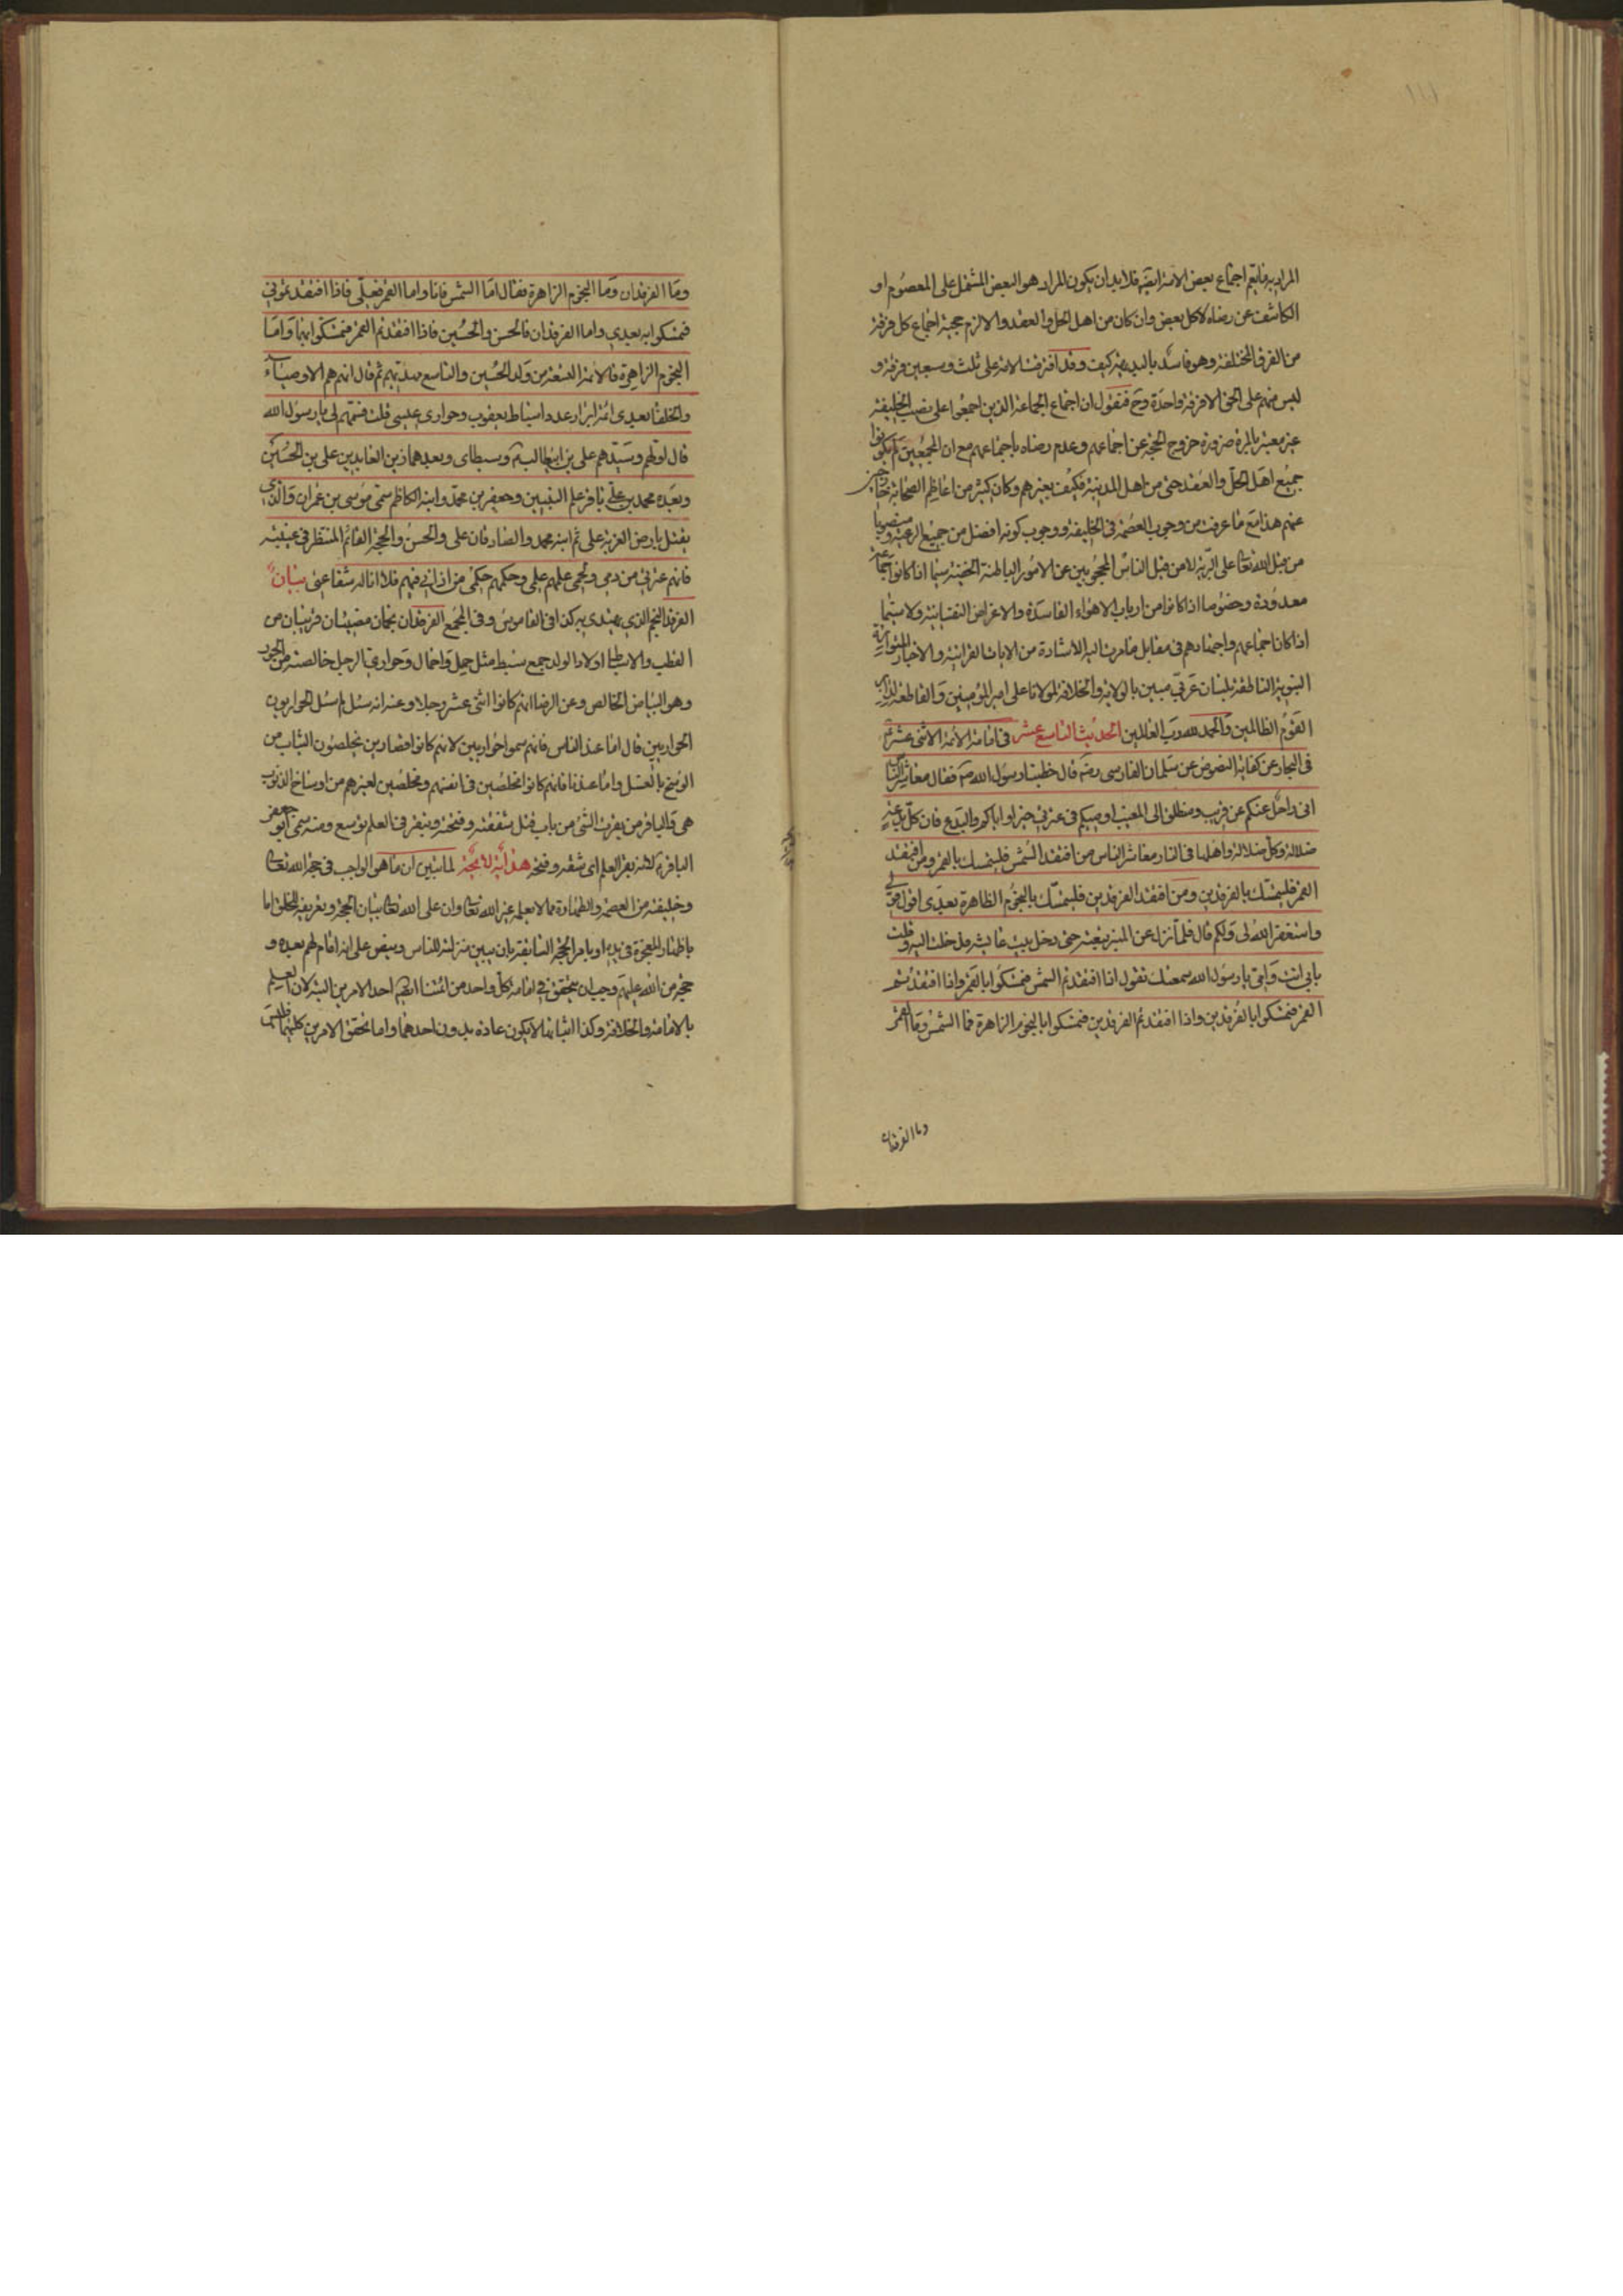 ١١١
المراد به ما يعم اجماع بعض الامة ايضا فلا بد ان يكون المراد هو البعض المشتمل على المعصوم او
الكاشف عن رضاه لا كل بعض وان كان من اهل الحل والعقد والا لزم حجية اجماع كل فرقة
من الفرق المختلفة وهو فاسد بالبديهة كيف وقد افترقت الامة على ثلث وسبعين فرقة و
ليس منهم على الحق الا فرقة واحدة وح فنقول ان اجماع الجماعة الذين اجمعوا على نصب الخليفة
غير معتبر بالمرة ضرورة خروج الحجة عن اجماعهم وعدم رضاه باجماعهم مع ان المجمعين لم يكونوا
جميع اهل الحل والعقد حتى من اهل المدينة فكيف بغيرهم وكان كثير من اعاظم الصحابة
عنهم هذا مع ما عرفت من وجوب العصمة في الخليفة ووجوب كونه افضل من جميع الرعية ومنصوبا
من قبل الله تعالى على البرية لا من قبل الناس المحجوبين عن الامور الباطنة الخفية سيما اذا كانوا جماعة
معدودة وخصوصا اذا كانوا من ارباب الاهواء الفاسدة والاغراض النفسانية ولا سيما
اذا كان اجماعهم واجتهادهم في مقابل ما مرت اليه الاشارة من الايات القرانية والاخبار المتواترة
النبوية الناطقة بلسان عربي مبين بالولاية والخلافة لمولانا على امير المؤمنين والقاطعة لدابر
القوم الظالمين والحمد لله رب العالمين الحديث التاسع عشر في امامة الائمة الاثني عشر
في البحار عن كفاية النصوص عن سلمان الفارسي ره قال خطبنا رسول الله ص فقال معاشر الناس
اني راحل عنكم عن قريب ومنطلق الى المغيب اوصيكم في عترتي خيرا واياكم والبدع فان كل بدعة
ضلالة وكل ضلالة واهلها في النار معاشر الناس من افتقد الشمس فليتمسك بالقمر ومن افتقد
القمر فليتمسك بالفرقدين ومن افتقد الفرقدين فليتمسك بالنجوم الظاهرة بعدي اقول قولي
واستغفر الله لي ولكم قال فلما نزل عن المنبر تبعته حتى دخل بيت عايشه فدخلت اليه وقلت
بابي انت وامي يا رسول الله سمعتك تقول اذا افتقدتم الشمس فتمسكوا بالقمر واذا افتقدتم
القمر فتمسكوا بالفرقدين واذا افتقدتم الفرقدين فتمسكوا بالنجوم الزاهرة فما الشمس وما القمر
وما الفرقدان
وما الفرقدان وما النجوم الزاهرة فقال اما الشمس فانا واما القمر فعلي فاذا افتقدتموني
فتمسكوا به بعدي واما الفرقدان فالحسن والحسين فاذا افتقدتم القمر فتمسكوا بهما واما
النجوم الزاهرة فالائمة التسعة من ولد الحسين والتاسع مهديهم ثم قال انهم هم الاوصياء
والخلفا بعدي ائمة ابرار عدد اسباط يعقوب وحواري عيسى قلت فسمهم لي يا رسول الله
قال اولهم وسيدهم علي بن ابيطالب وسبطاي وبعدهما زين العابدين علي بن الحسين
وبعده محمد بن علي باقر علم النبيين وجعفر بن محمد وابنه الكاظم سمي موسى بن عمران والذي
يقتل بارض الغربة على ثم ابنه محمد والصادقان علي والحسن والحجة القائم المنتظر في غيبته
فانهم عترتي من دمي ولحمي علمهم علمي وحكمهم حكمي من اذاني فيهم فلا اناله شفاعتي بيان
الفرقد النجم الذي يهتدى به كذا في القاموس وفي المجمع الفرقدان نجمان مضيئان قريبان من
القطب والاسباط اولاد الولد جمع سبط مثل حمل واحمال وحواري الرجل خالصته من الحور
وهو البياض الخالص وعن الرضا انهم كانوا اثني عشر رجلا وعنه انه سئل لم سمي الحواريون
الحواريين قال اما عند الناس فانهم سموا حواريين لانهم كانوا قصارين يخلصون الثياب من
الوسخ بالغسل واما عندنا فانهم كانوا مخلصين في انفسهم ومخلصين لغيرهم من اوساخ الذنوب
هي والباقر من بقرت الشئ من باب قتل شققته وفتحته وتبقر في العلم توسع ومنه سمي ابو جعفر
الباقر لانه بقر العلم اي شقه وفتحه هداية لا لما تبين ان ما هو الواجب في حجة الله تعالى
وخليفته من العصمة والطهارة مما لا يعلمه غير الله تعالى وان على الله تعالى بيان الحجة وتعريفه للخلق اما
باظهار المعجزة في يديه او بامر الحجة السابقة بان يبين منزلته للناس وينص على انه امام لهم بعده و
حجة من الله عليهم وجب ان يتحقق في امامة كل واحد من ائمتنا احد الامرين البتة لان العلم
بالامامة والخلافة وكذا اثباتها لا يكون عادة بدون احدهما واما تحقق الامرين كليهما فليس